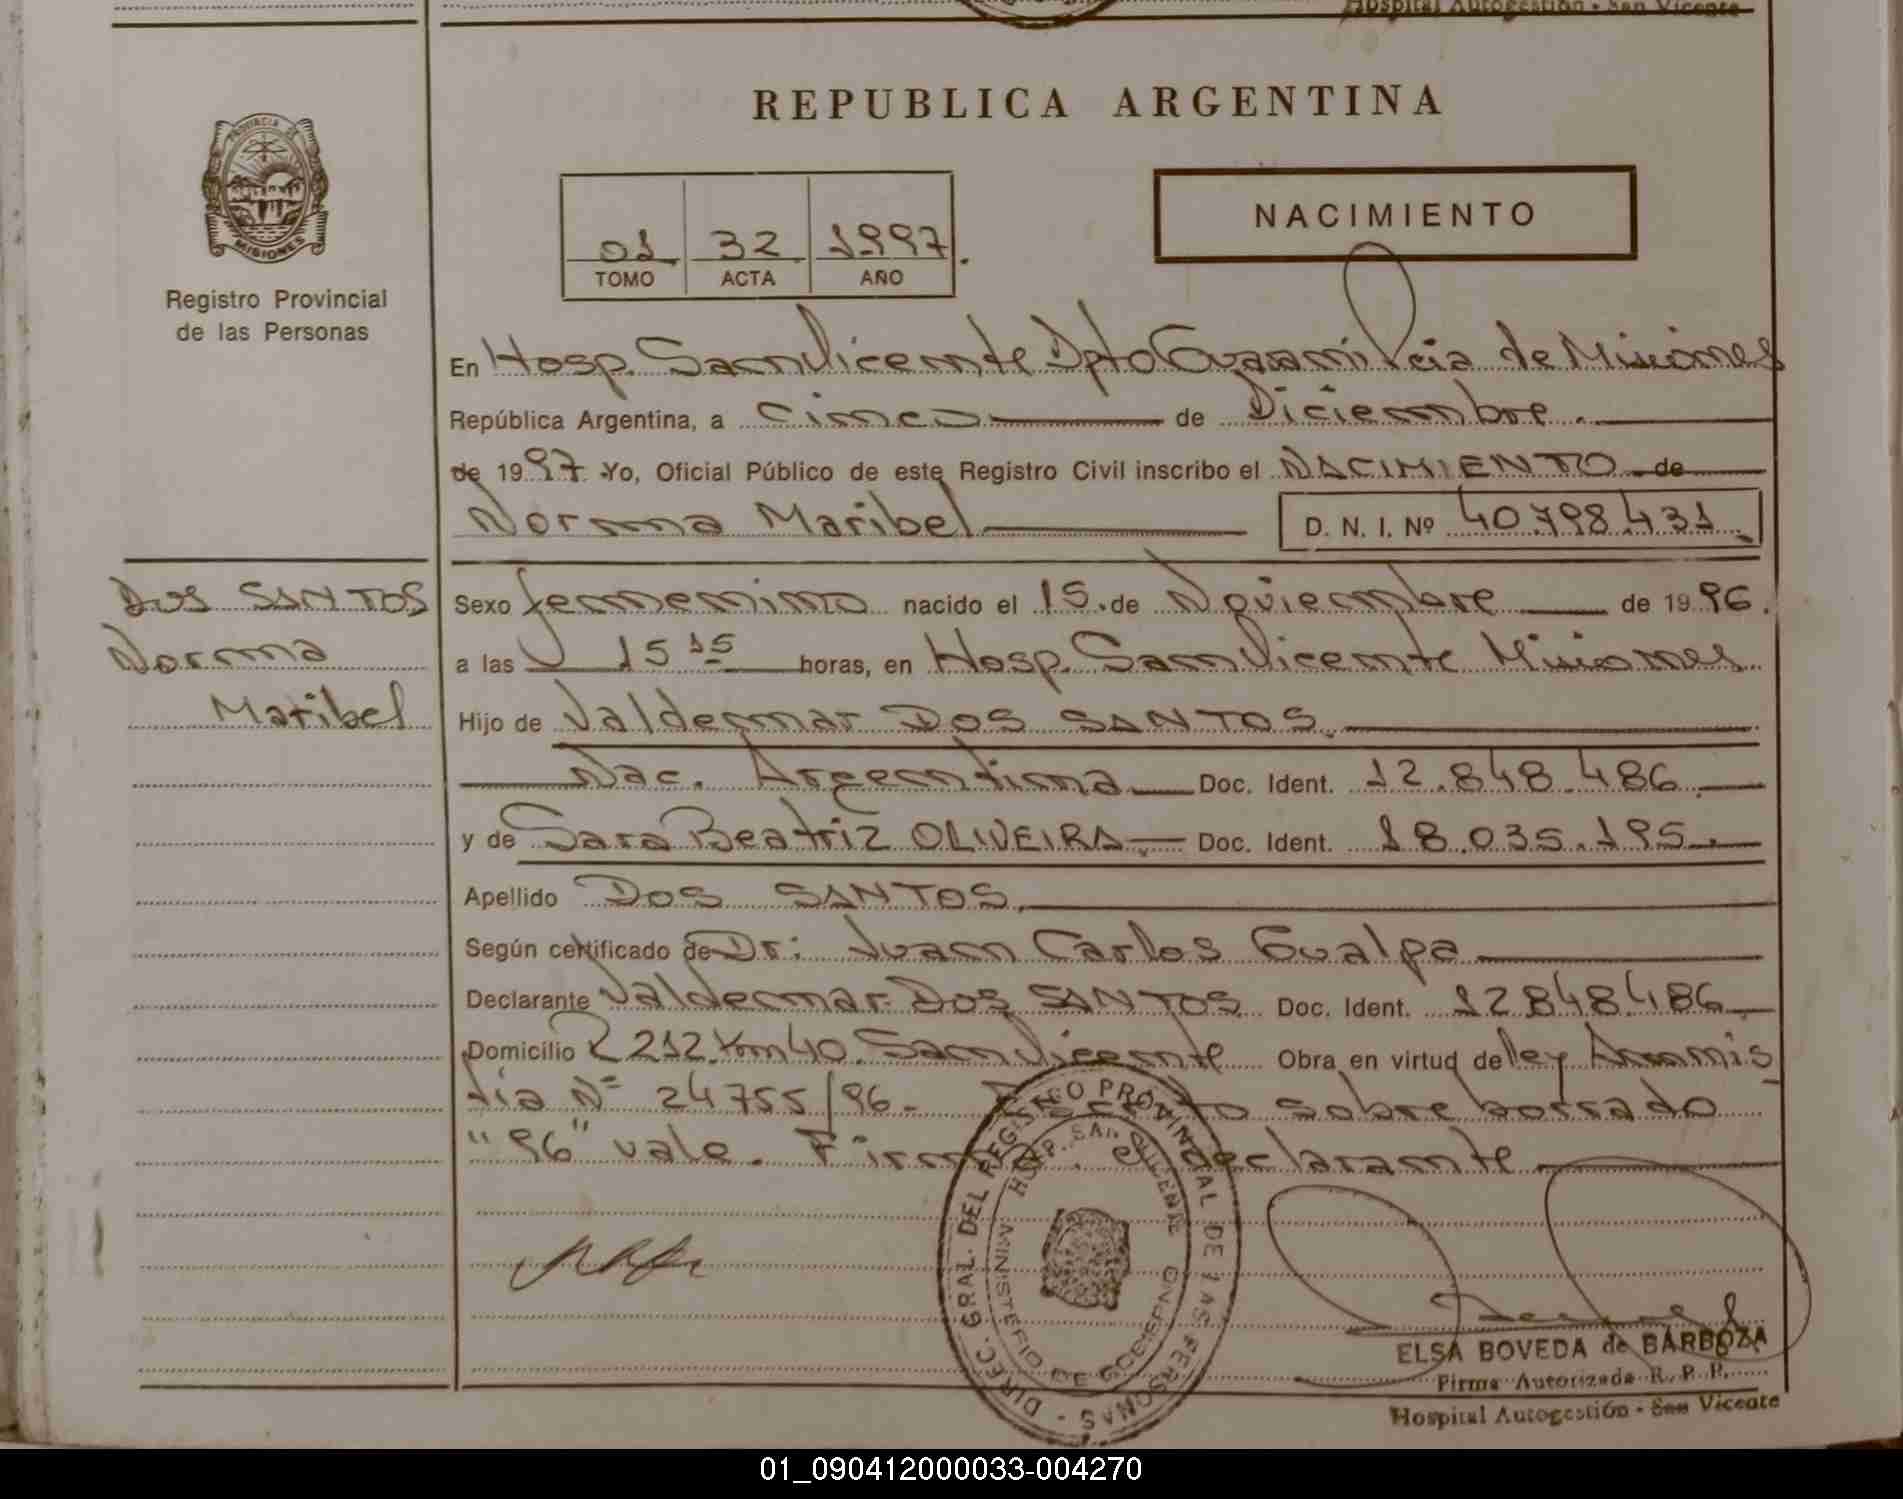 Hospital Autogestión - San Vicente
REPUBLICA ARGENTINA
PROVINCIA DE
MISIONES
Registro Provincial
de las Personas
01 32 1997
TOMO ACTA AÑO
NACIMIENTO
En Hosp. San Vicente Dpto Guarani Pcia de Misiones
República Argentina, a cinco de Diciembre.
de 1997. Yo, Oficial Público de este Registro Civil inscribo el NACIMIENTO de
Norma Maribel D. N. I. Nº 40.798.431
DOS SANTOS
Norma
Maribel
Sexo femenino nacido el 15 de Noviembre de 1996.
a las 15 15 horas, en Hosp. San Vicente Misiones
Hijo de Valdemar DOS SANTOS.
Nac. Argentina Doc. Ident. 12.848.486
y de Sara Beatriz OLIVEIRA Doc. Ident. 18.035.195
Apellido DOS SANTOS
Según certificado de Dr: Juan Carlos Gualpa
Declarante Valdemar DOS SANTOS Doc. Ident. 12848486
Domicilio R 212 Km 40 San Vicente Obra en virtud de ley Amnis
tia Nº 24755/96- sobre borrado
"96" vale. Firma declarante
DIREC. GRAL. DEL REGISTRO PROVINCIAL DE LAS PERSONAS -
HOSP. SAN VICENTE
MINISTERIO DE GOBIERNO
ELSA BOVEDA de BARBOZA
Firma Autorizada R. P. P.
Hospital Autogestión - San Vicente
01_090412000033-004270